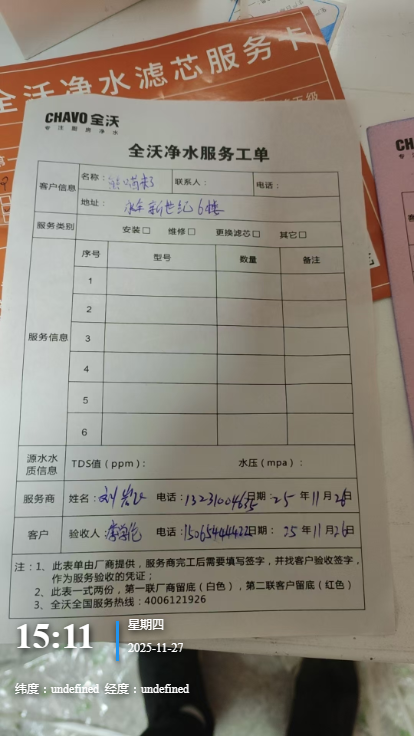 全沃净水滤芯服务卡
CHAVO 全沃
专注厨房净水
全沃净水服务工单
客户信息 名称： 联系人： 电话：
地址： 新世纪6楼
服务类别 安装□ 维修□ 更换滤芯□ 其它□
服务信息 序号 型号 数量 备注
1
2
3
4
5
6
源水水质信息 TDS值（ppm）： 水压（mpa）：
服务商 姓名：刘 电话： 日期：25年11月26日
客户 验收人： 电话： 日期：25年11月26日
注：1、此表单由厂商提供，服务商完工后需要填写签字，并找客户验收签字，
作为服务验收的凭证；
2、此表一式两份，第一联厂商留底（白色），第二联客户留底（红色）
3、全沃全国服务热线：4006121926
15:11 星期四
2025-11-27
纬度：undefined 经度：undefined